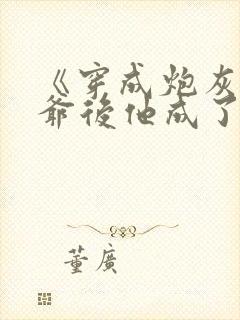 《穿成炮灰
爺後他成了
董廣